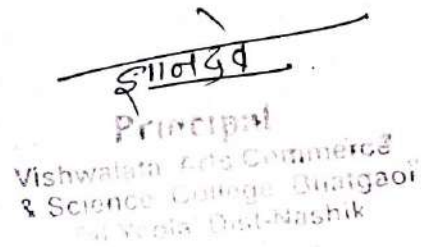 ज्ञानदेव
Principal
Vishwalata Arts Commerce
& Science College Bhatgaon
Tal Yeola Dist-Nashik